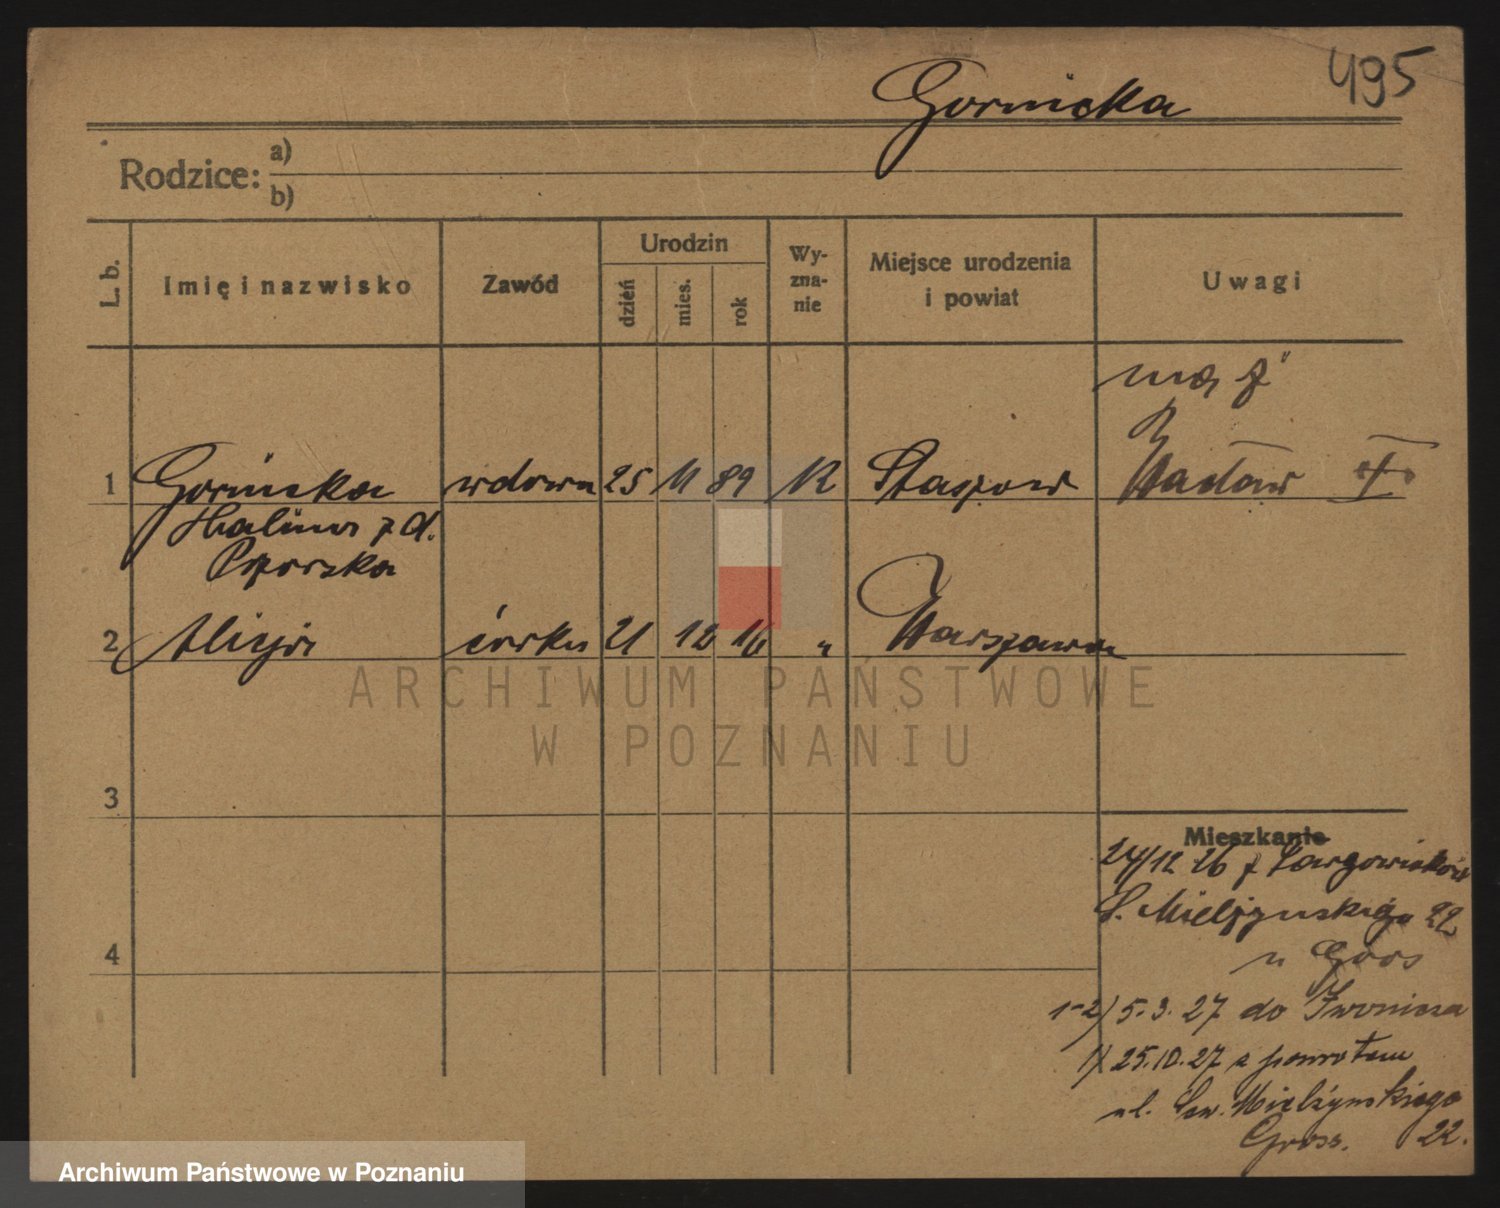 495
Gornicka
Rodzice: a)
b)
L. b.
Imię i nazwisko
Zawód
Urodzin
dzień
mies.
rok
Wy-
zna-
nie
Miejsce urodzenia
i powiat
Uwagi
mąż
Wacław
1 Gornicka wdowa 25 11 89 Staszow
Halina z d.
2 Alicja córka 21 12 16 " Warszawa
ARCHIWUM PAŃSTWOWE
W POZNANIU
3
Mieszkanie
24/12 26 z Targowisków
S. Mielżynskiego 22
u Gros
4
1-2) 5.3.27 do Iwonicza
1) 25.10.27 z powrotem
ul. Sew. Mielżynskiego
Gross. 22.
Archiwum Państwowe w Poznaniu